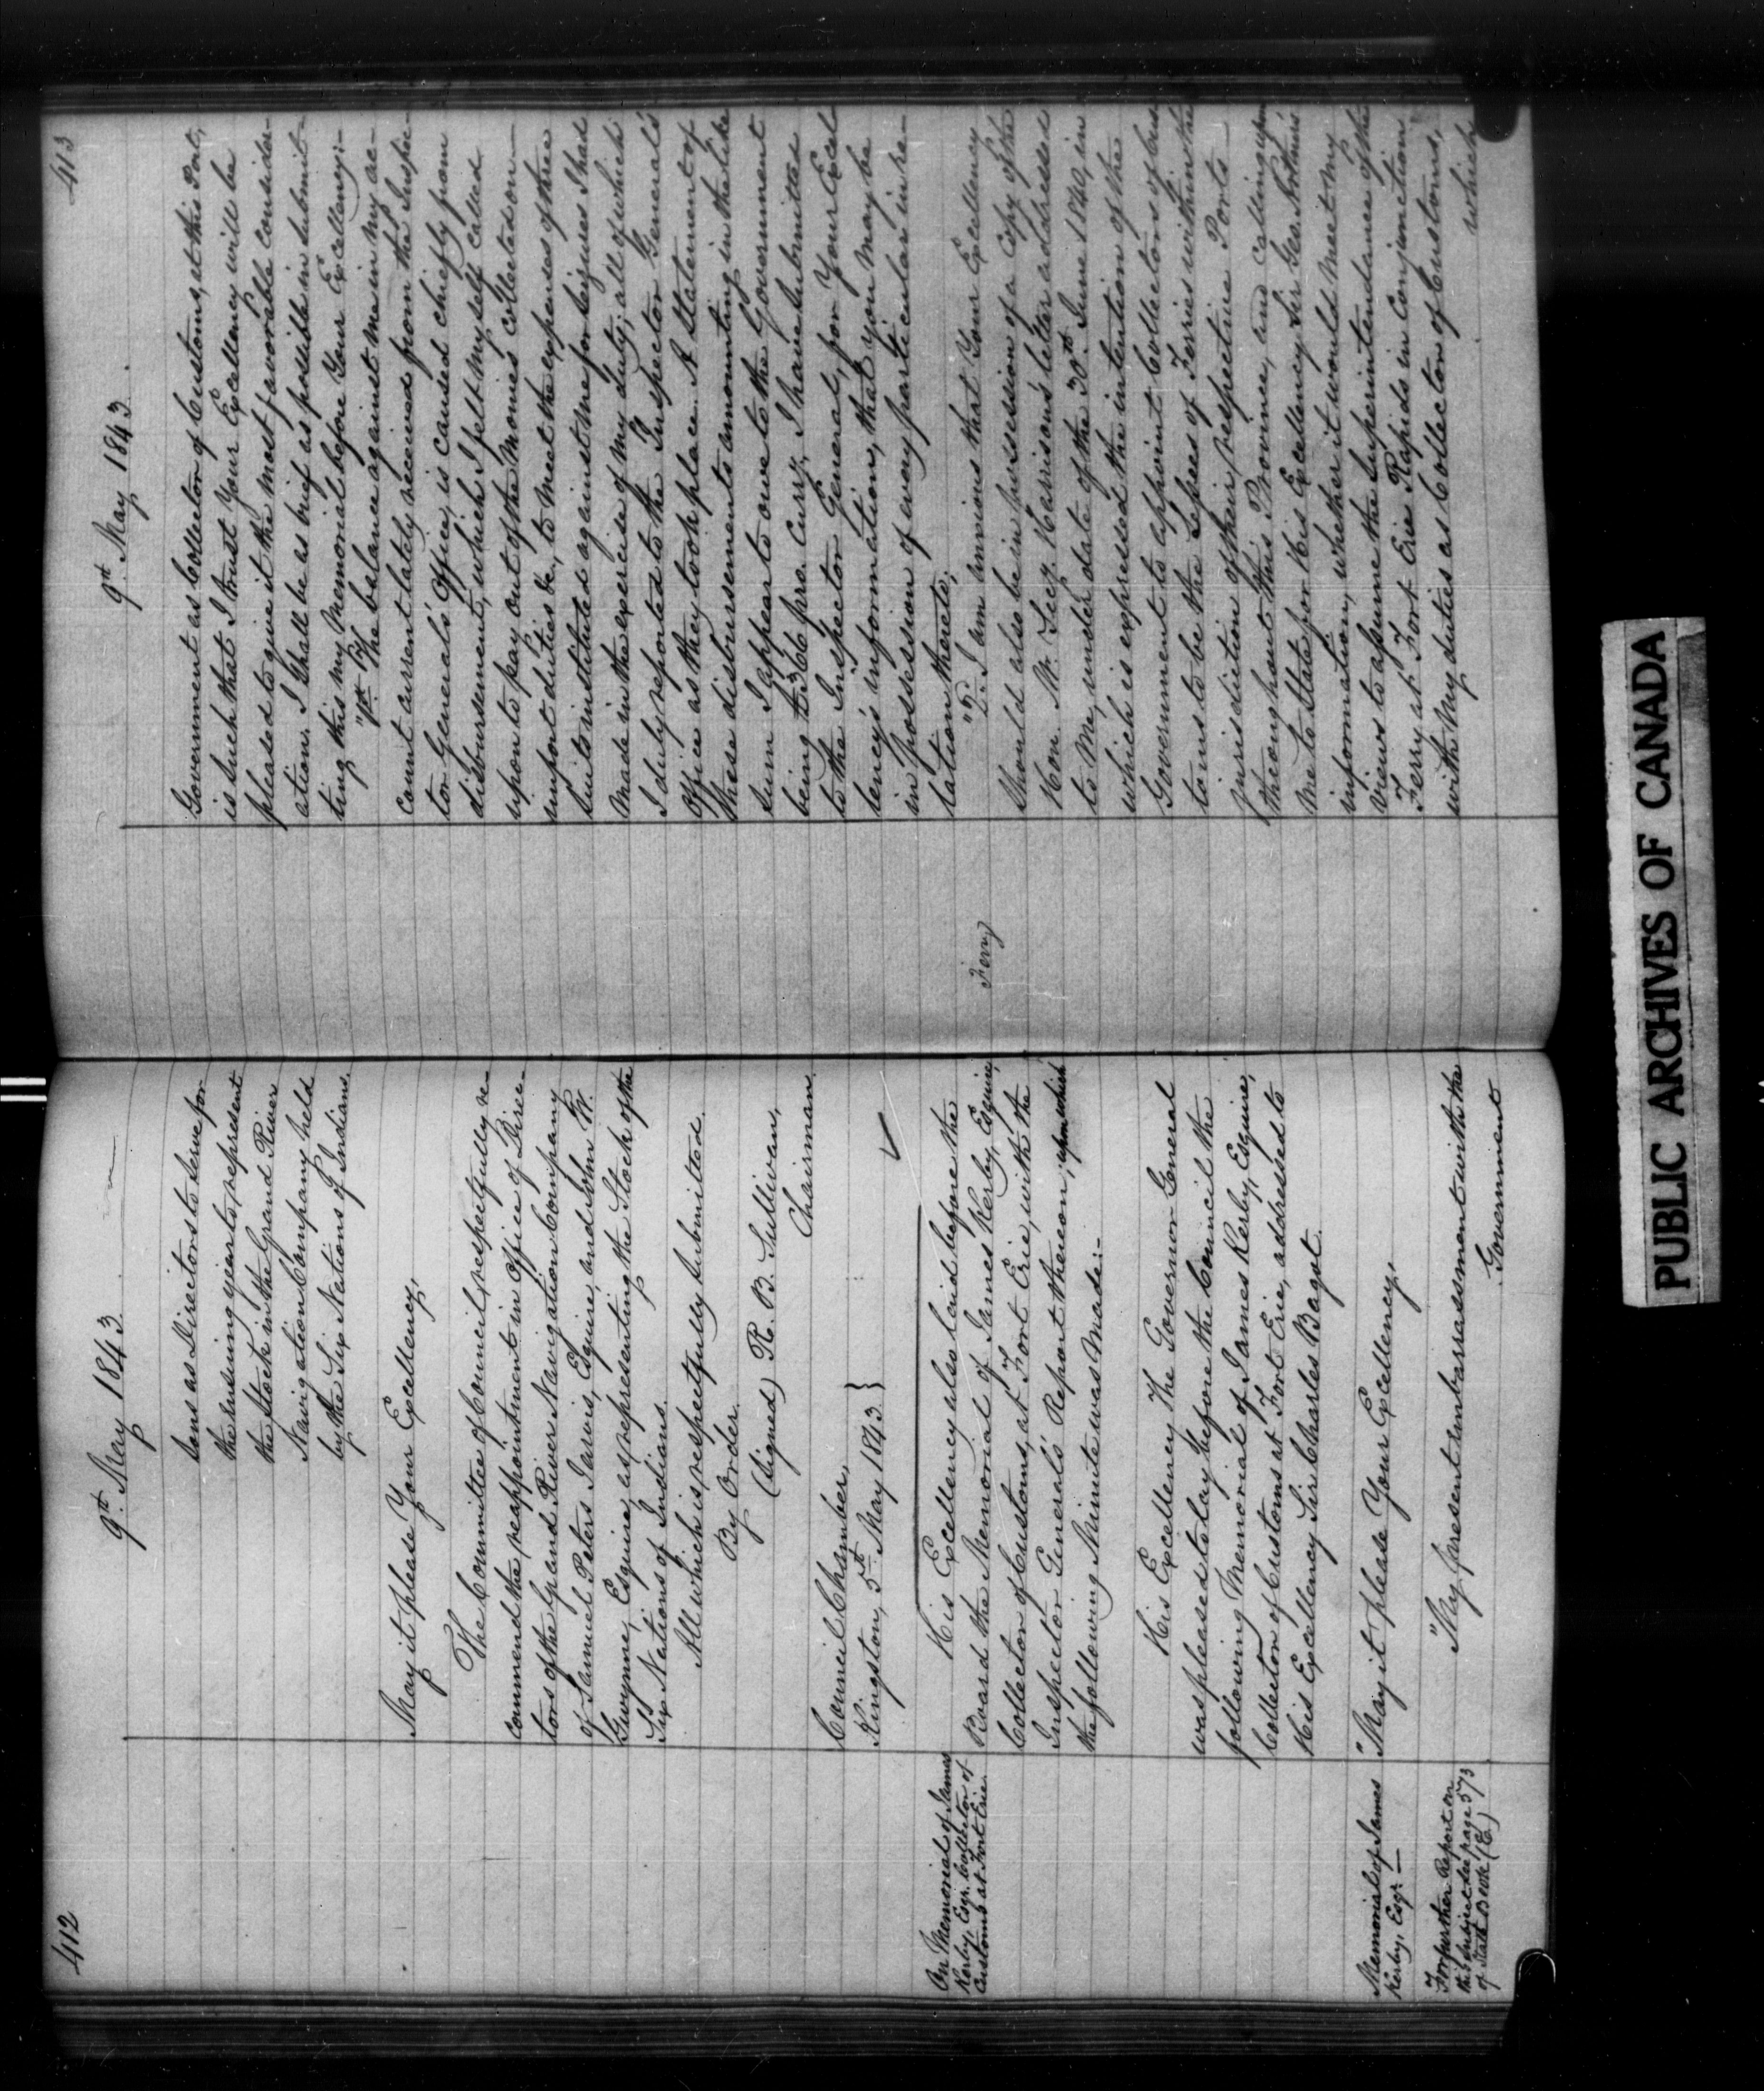 412
9th. May 1843.
sons as Directors to serve for
the ensuing year to represent
the Stock in the Grand River
Navigation Company held
by the Six Nations of Indians.
May it please Your Excellency,
The Committee of Council, respectfully re-
commend the reappointment in Office of Direc-
tors of the Grand River Navigation Company
of Samuel Peters Jarvis, Esquire, and John W.
Gwynne, Esquire, as representing the Stock of the
Six Nations of Indians.
All which is respectfully submitted.
By Order.
(signed) R. B. Sullivan,
Chairman.
Council Chamber,
Kingston, 5th May 1843. }
On Memorial of James
Kerby, Esqr. Collector of
Customs at Fort Erie.
His Excellency also laid before the
Board the Memorial of James Kerby, Esquire,
Collector of Customs, at Fort Erie, with the
Inspector General's Report thereon, upon which
the following Minute was made:-
His Excellency The Governor General
was pleased to lay before the Council the
following Memorial of James Kerby, Esquire,
Collector of Customs at Fort Erie, addressed to
His Excellency Sir Charles Bagot.
Memorial of James
Kerby, Esqr. —
"May it please Your Excellency.
For further Report on
this subject see page 573
of State Book (E)
"My present embarrassment with the
Government
413
9th. May 1843.
Government as Collector of Customs, at this Port,
is such that I trust Your Excellency will be
pleased to give it the most favorable consider-
ation. I shall be as brief as possible in submit-
ting this my Memorial before Your Excellency:-
"1st. The balance against me in my ac-
count current lately received from the Inspec-
tor General's Office, is caused chiefly from
disbursement, which I felt myself called
upon to pay out of the Monies collected on
import duties &c., to meet the expenses of three
suits instituted against me for seizures I had
made in the exercise of my duty; all of which
I duly reported to the Inspector General's
Office as they took place. A Statement of
these disbursements amounting in the like
sum I appear to owe to the Government
being £366 pro. Curry, I have submitted
to the Inspector General, for Your Excel-
lency's information, that you may be
in possession of every particular in re-
lation thereto;
Ferry
"2d. I am anxious that Your Excellency
should also be in possession of a Copy of the
Hon. Mr. Secy. Harrison's letter addressed
to me, under date of the 30th. June 1840, in
which is expressed the intention of the
Government to appoint Collectors of Cus-
toms to be the Lessees of Ferries within the
jurisdiction of their respective Ports
throughout this Province, and calling upon
me to state for His Excellency Sir Geo. Arthur's
information, whether it would meet my
views to assume the superintendance of the
Ferry at Fort Erie Rapids in Conjunction
with my duties as Collector of Customs,
which
PUBLIC ARCHIVES OF CANADA